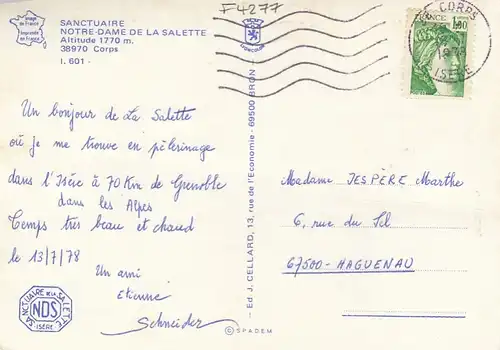 Image de France
Imprimée en France
SANCTUAIRE
NOTRE-DAME DE LA SALETTE
Altitude 1770 m.
38970 Corps
I. 601 -
F4277
CORPS
ISÈRE
FRANCE
1,00
Un bonjour de La Salette
où je me trouve en pèlerinage
dans l'Isère à 70 Km de Grenoble
dans les Alpes
Temps très beau et chaud
le 13/7/78
Un ami
Etienne
Schneider
SANCTUAIRE DE LA SALETTE
NDS
ISÈRE
Ed. J. CELLARD, 13, rue de l'Economie - 69500 BRON -
© SPADEM
Madame JESPÈRE Marthe
6, rue du Sel
67500 - HAGUENAU